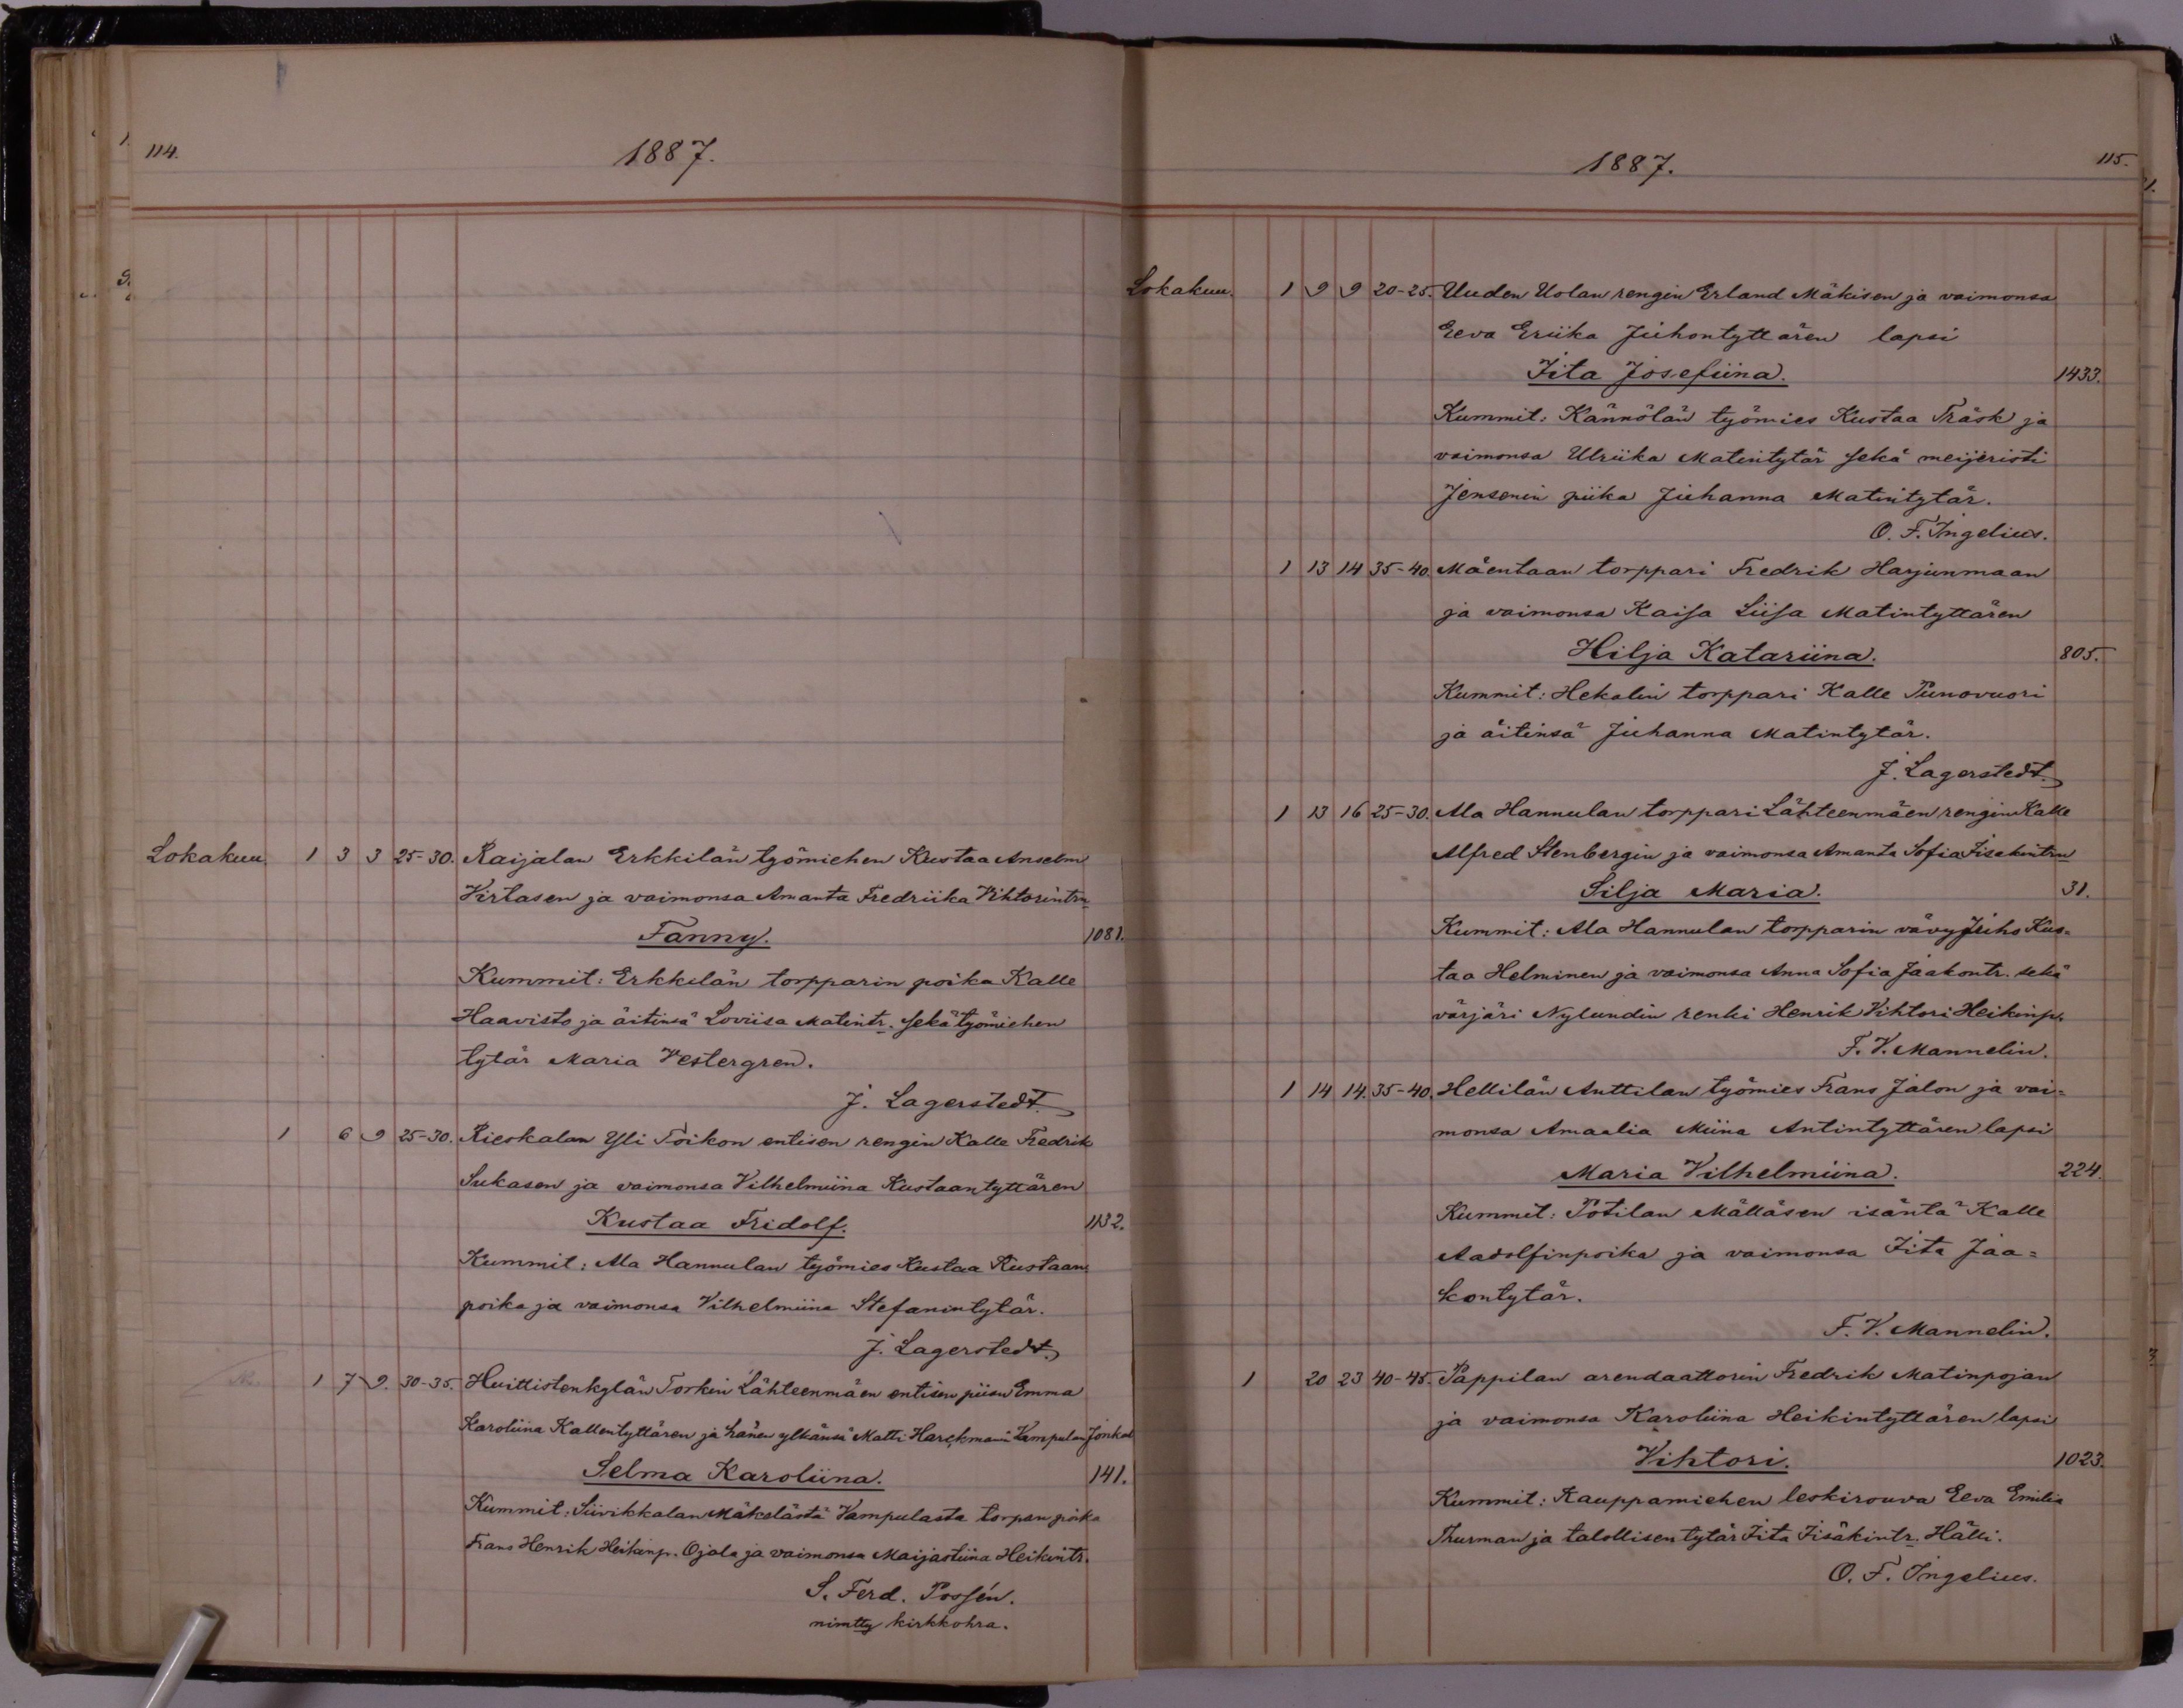 114.
1887.
Lokakuu. 1 3 3 25-30. Raijalan Erkkilän työmiehen Kustaa Anselm
Virtasen ja vaimonsa Amanta Fredriika Vihtorintrn
Fanny. 1081.
Kummit: Erkkilän torpparin poika Kalle
Haavisto ja äitinsä Loviisa Matintr. sekä työmiehen
tytär Maria Vestergren.
J. Lagerstedt.
1 6 9 25-30. Rieskalan Yli Toikon entisen rengin Kalle Fredrik
Sukasen ja vaimonsa Vilhelmiina Kustaantyttären
Kustaa Fridolf. 1132.
Kummit: Ala Hannulan työmies Kustaa Kustaan
poika ja vaimonsa Vilhelmiina Stefanintytär.
J. Lagerstedt.
1 7 9. 30-35. Huittistenkylän Torkin Lähteenmäen entisen piian Emma
Karoliina Kallentyttären ja hänen ylkänsä Matti Harckmanin Vampulan
Selma Karoliina. 141.
Kummit: Siivikkalan Mäkelästä Vampulasta torpan poika
Frans Henrik Heikinp. Ojala ja vaimonsa Maijastiina Heikintr.
S. Ferd. Possén.
nimtty kirkkohra.
1887.
115.
Lokakuu. 1 9 9 20-25. Uuden Uolan rengin Erland Mäkisen ja vaimonsa
Eeva Eriika Juhontyttären lapsi
Iita Josefiina. 1433.
Kummit: Kännölän työmies Kustaa Träsk ja
vaimonsa Ulriika Matintytär sekä meijeristi
Jensenin piika Juhanna Matintytär.
O. F. Ingelius.
1 13 14 35-40. Mäentaan torppari Fredrik Harjunmaan
ja vaimonsa Kaisa Liisa Matintyttären
Hilja Katariina. 805.
Kummit: Hekalin torppari Kalle Punovuori
ja äitinsä Juhanna Matintytär.
J. Lagerstedt.
1 13 16 25-30. Ala Hannulan torppari Lähteenmäen rengin Kalle
Alfred Stenbergin ja vaimonsa Amanta Sofia Iisakintrn
Silja Maria. 31.
Kummit: Ala Hannulan torpparin vävy Juho Kus=
taa Helminen ja vaimonsa Anna Sofia Jaakontr. sekä
värjäri Nylundin renki Henrik Vihtori Heikinp.
F. V. Mannelin.
1 14 14. 35-40. Hellilän Anttilan työmies Frans Jalon ja vai=
monsa Amaalia Miina Antintyttären lapsi
Maria Vilhelmiina. 224.
Kummit: Pötilan Mälläsen isäntä Kalle
Aadolfinpoika ja vaimonsa Iita Jaa=
kontytär.
F. V. Mannelin.
1 20 23 40-45. Pappilan arendaattorin Fredrik Matinpojan
ja vaimonsa Karoliina Heikintyttären lapsi
Vihtori. 1023.
Kummit: Kauppamiehen leskirouva Eeva Emilia
Thurman ja talollisen tytär Iita Iisakintr. Hälli.
O. F. Ingelius.